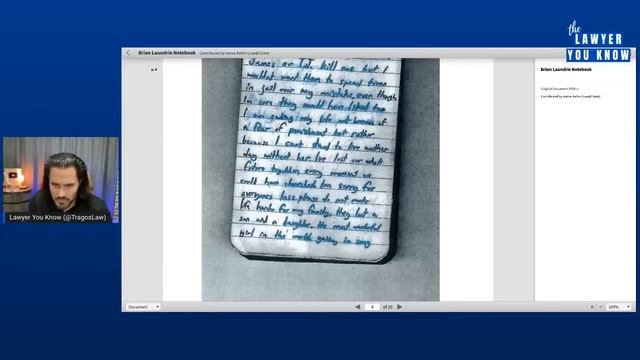 the
LAWYER
YOU KNOW
Brian Laundrie Notebook
Brian Laundrie Notebook
p. 8
kill me but I
wouldnt want them to spend time
in jail over my mistake, even though
Im sure they would have liked too
I am ending my life not because of
a fear of punishment but rather
because I cant stand to live another
day without her. Ive lost our whole
future together, every moment we
could have cherished. Im sorry for
everyones loss. please do not make
life harder for my family, they lost a
son and a daughter. the most wonderful
girl in the world. gabby im sorry
Lawyer You Know (@TragosLaw)
Document
8 of 10